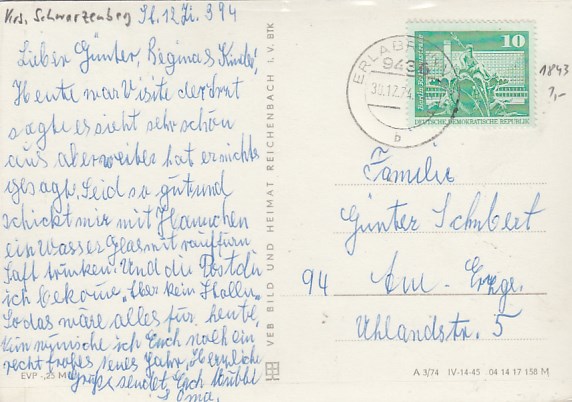 Krs. Schwarzenberg St. 12 Zi. 394
Lieber Günter, Reginas Kinder,
Heute war Visite der Arzt
sagte es sieht sehr schön
aus aber weiter hat er nichts
gesagt. Seid so gut und
schickt mir mit Hannchen
ein Wasser Glas mit rauf für
Saft trinken. Und die Post die
ich bekome, Aber kein
So das wäre alles für heute,
Nun wünsche ich Euch noch ein
recht frohes neues Jahr. Herzliche
Grüße sendet Euch
Oma.
EVP -,25 M
VEB BILD UND HEIMAT REICHENBACH I. V. BTK
ERLABRUNN
943
30.12.74
b
10
DEUTSCHE DEMOKRATISCHE REPUBLIK
1843
1,-
Familie
Günter Schubert
94 Aue - Erzge.
Uhlandstr. 5
A 3/74 IV-14-45 04 14 17 158 M